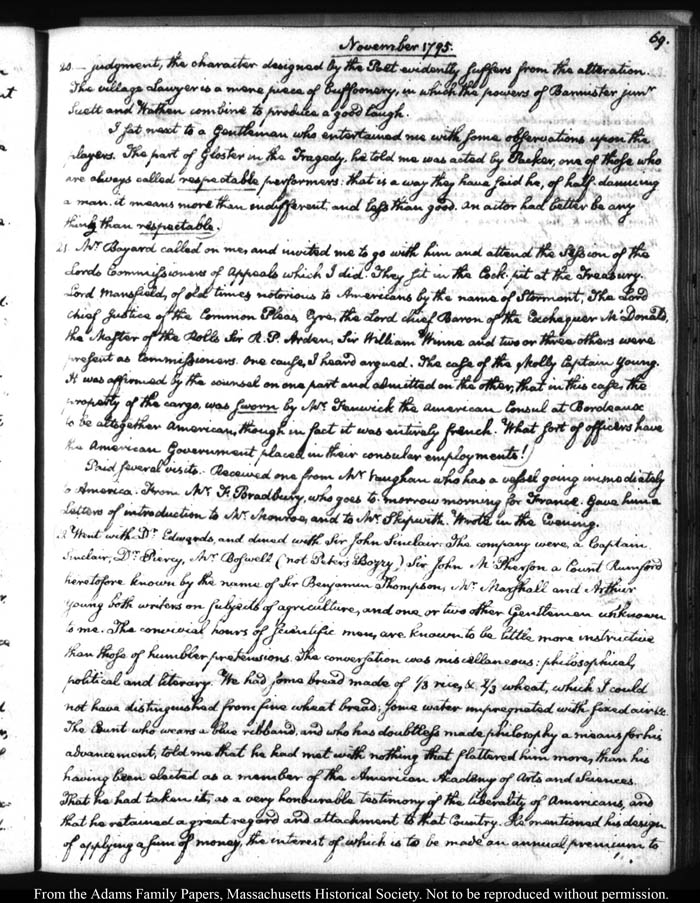 69.
November 1795.
20. — judgment, the character designed by the Poet evidently suffers from the alteration.
The village Lawyer is a mere piece of Buffoonery, in which the powers of Bannister junr
Suett and Wathen combine to produce a good laugh.
I set next to a Gentleman who entertained me with some observations upon the
players. The part of Gloster in the Tragedy, he told me was acted by Packer, one of those who
are always called respectable performers: that is a way they have said he, of half damning
a man. it means more than indifferent and less than good. An actor had better be any
thing than respectable.
21. Mr Bayard called on me, and invited me to go with him and attend the Session of the
Lords Commissioners of Appeals which I did. They sit in the Cock-pit at the Treasury.
Lord Mansfield, of old times notorious to Americans by the name of Stormont, The Lord
chief Justice of the Common Pleas Eyre, the Lord chief Baron of the Exchequer McDonald,
the Master of the Rolls Sir R. P. Arden, Sir William Wynne and two or three others were
present as Commissioners. One cause, I heard argued. The case of the Molly Captain Young.
It was affirmed by the counsel on one part and admitted on the other, that in this case, the
property of the cargo, was sworn by Mr Fenwick the American Consul at Bordeaux
to be altogether American, though in fact it was entirely french. What sort of officers have
the American Government placed in their consular employments!
Paid several visits. Received one from Mr Vaughan who has a vessel going immediately
to America. From Mr F. Bradbury, who goes to-morrow morning for France. Gave him a
Letters of introduction to Mr Monroe, and to Mr Skipwith. Wrote in the Evening.
Went with Dr Edwards, and dined with Sir John Sinclair. The company were, a Captain
Sinclair, Dr Piercy, Mr Boswell (not Peter's Bozzy) Sir John McPherson a Count Rumford
heretofore known by the name of Sir Benjamin Thompson, Mr Marshall and Arthur
Young both writers on subjects of agriculture, and one or two other Gentlemen unknown
to me. The convivial hours of scientific men, are known to be little more instructive
than those of humbler pretensions. The conversation was miscellaneous: philosophical,
political and literary. We had some bread made of 1/3 rice, & 2/3 wheat, which I could
not have distinguished from fine wheat bread; some water impregnated with fixed air &c.
The Count who wears a blue ribband, and who has doubtless made philosophy a means for his
advancement, told me that he had met with nothing that flattered him more, than his
having been elected as a member of the American Academy of Arts and Sciences.
That he had taken it, as a very honourable testimony of the liberality of Americans, and
that he retained a great regard and attachment to that Country. He mentioned his design
of applying a sum of money, the interest of which is to be made an annual premium to
From the Adams Family Papers, Massachusetts Historical Society. Not to be reproduced without permission.